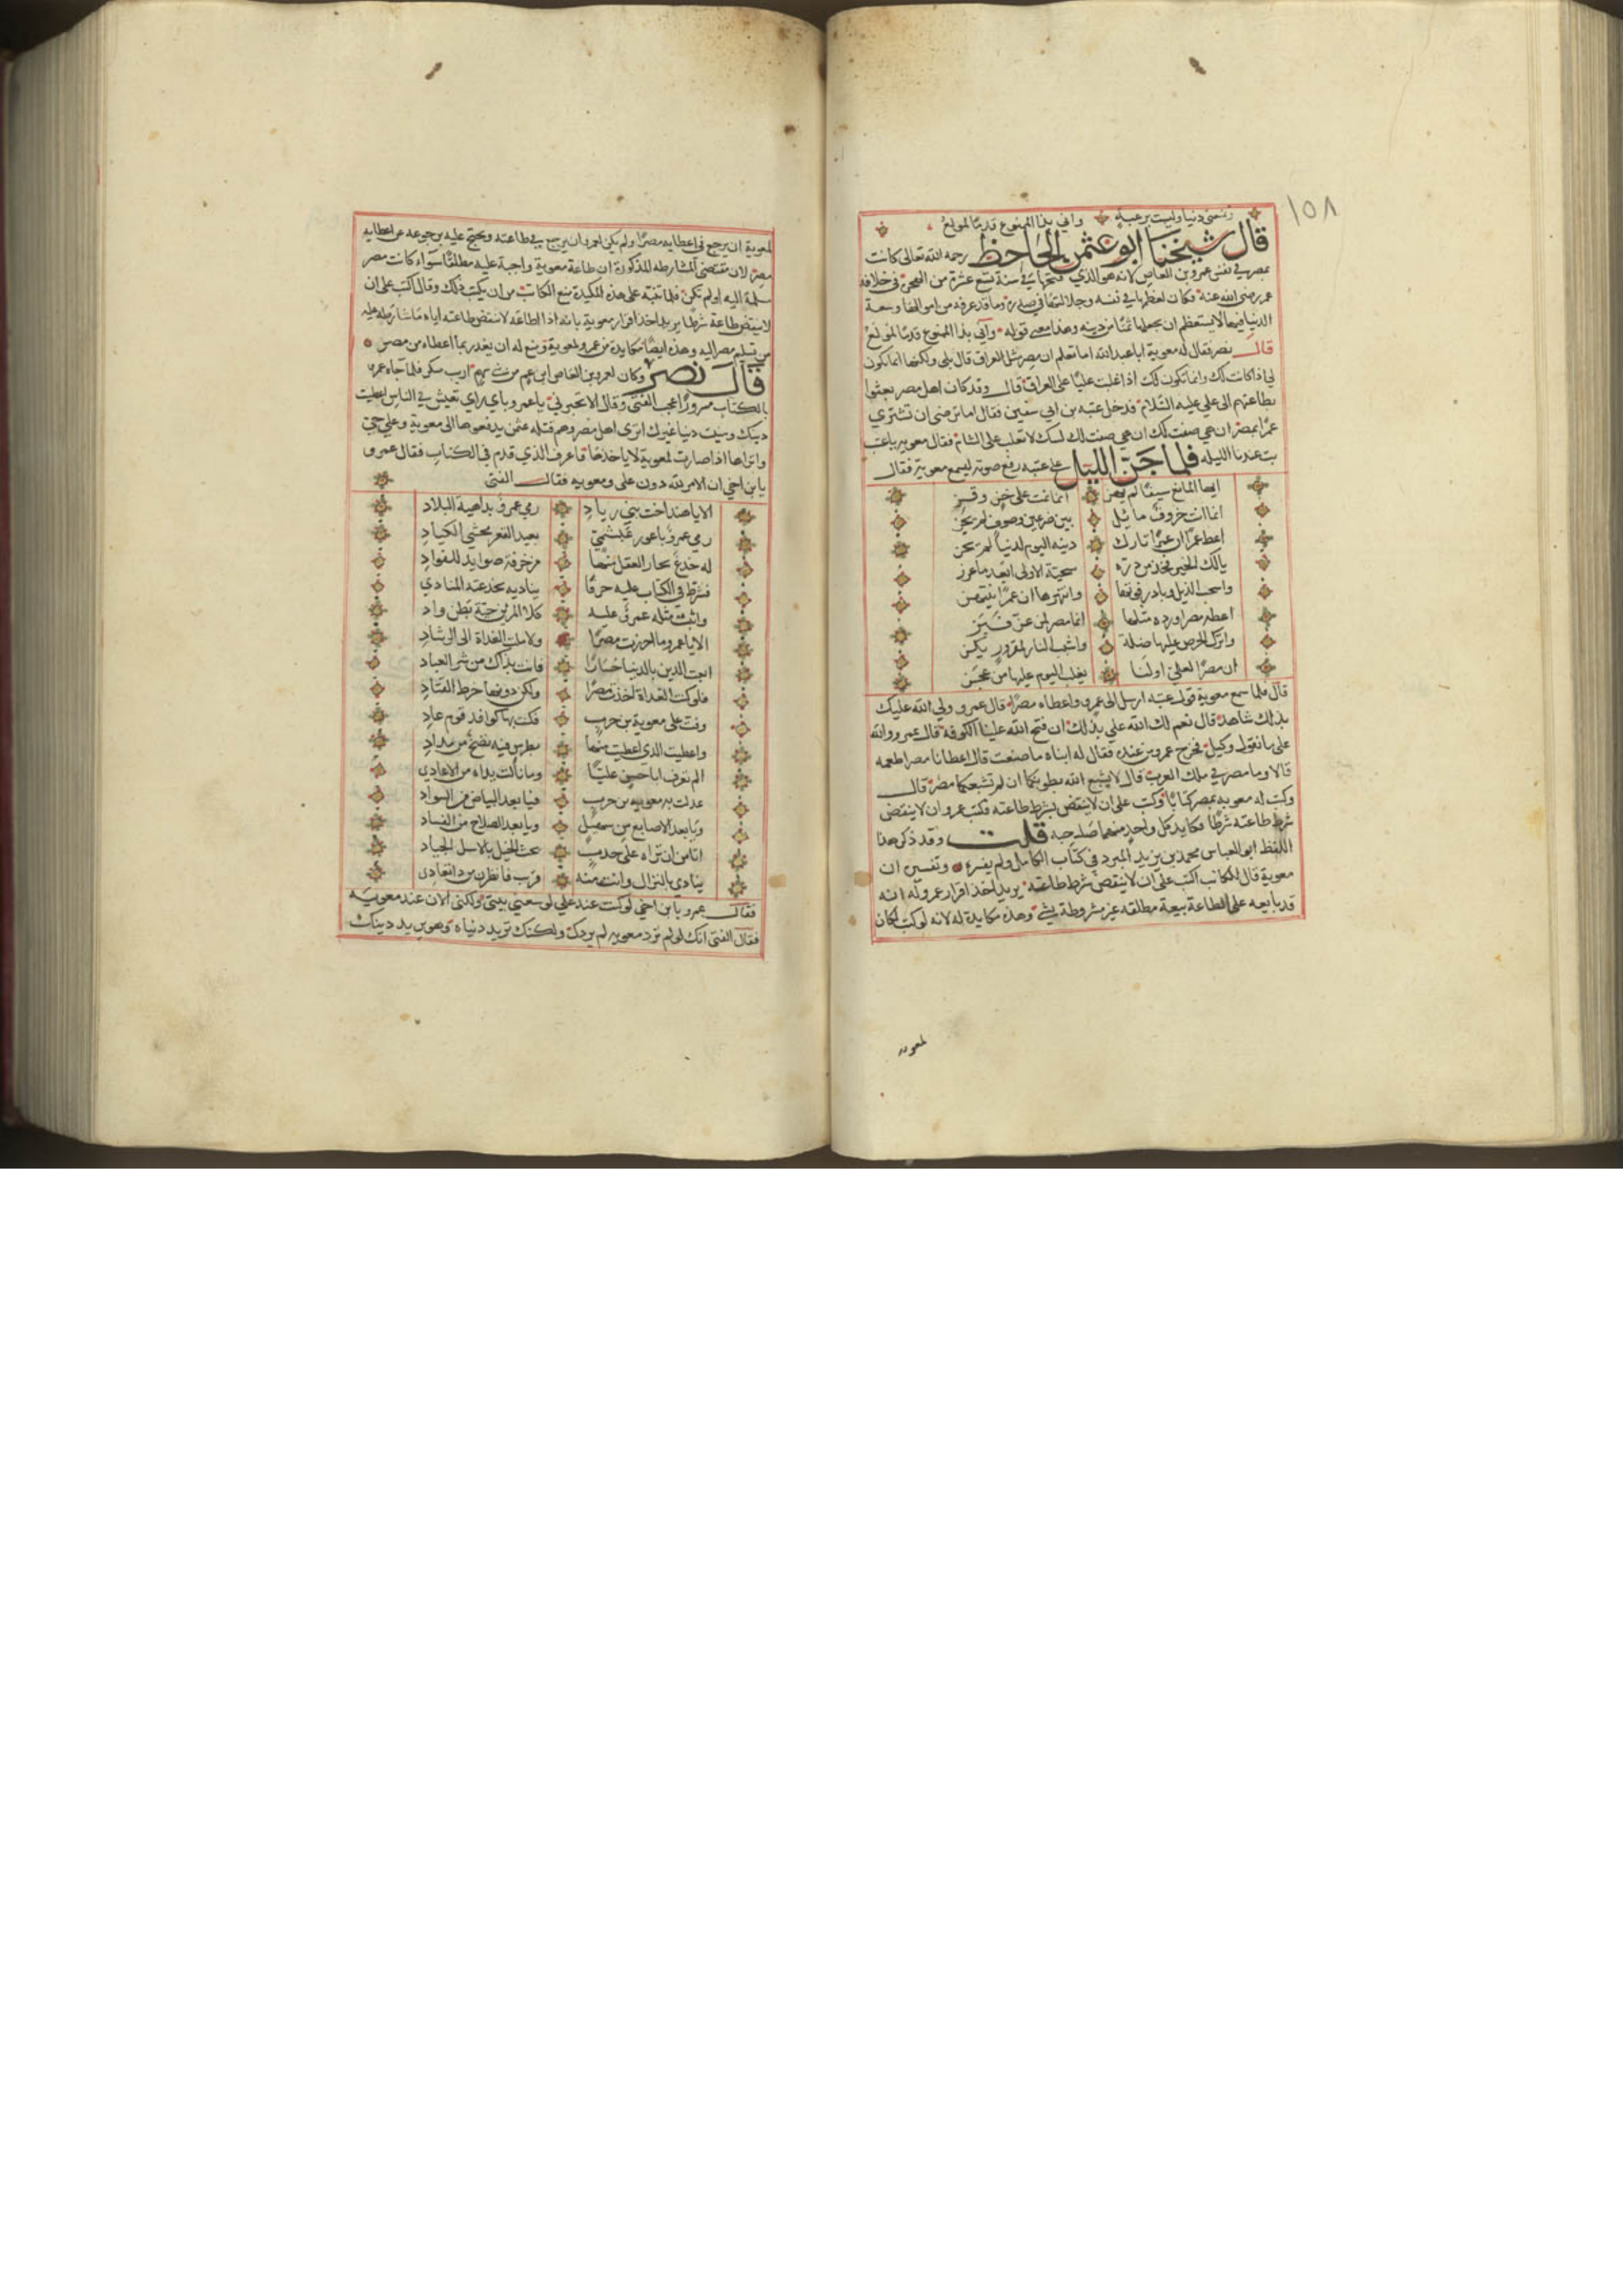 ١٥٨
وتمنعني دنيا وليست برغيبة وإني بذا الممنوع قدما لمولع
قال شيخنا ابو عثمن الجاحظ رحمه الله تعالى كانت
مصر في نفس عمرو بن العاص لانه هو الذي فتحها في سنة تسع عشرة من الهجرة في خلافة
عمر رضي الله عنه فكان لعظمها في نفسه وجلالتها في صدره وما قد عرفه من اموالها وسعة
الدنيا فيها لا يستعظم ان يجعلها ثمنا من دينه وهذا معنى قوله واني بذا الممنوع قدما لمولع
قال نصر فقال له معوية ابا عبد الله اما تعلم ان مصر مثل العراق قال بلى ولكنها انما تكون
لي اذا كانت لك وانما تكون لك اذا غلبت عليا على العراق قال وقد كان اهل مصر بعثوا
بطاعتهم الى علي عليه السلام فدخل عتبه بن ابي سفين فقال اما ترضى ان تشتري
عمرا بمصر ان هي صفت لك ليتك لا تغلب على الشام فقال معويه يا عتبه
بت عندنا الليله فلما جن الليل على عتبه رفع صوته ليسمع معوية فقال
ايها المانع سيفا لم يهز انما ملت على خز وقز
انما انت خروف ماثل بين ضرعين وصوف لم يجز
اعط عمرا ان عمرا تارك دينه اليوم لدنيا لم تحز
يا لك الخير فخذ من دره شخبة الاولى ابعد ما عزز
واسحب الذيل وبادر فوقها وانتهزها ان عمرا ينتهز
اعطه مصرا وزده مثلها انما مصر لمن عز فبز
واترك الحرص عليها ضلة واشبب النار لمقرور يكز
ان مصرا لعلي او لنا يغلب اليوم عليها من عجز
قال فلما سمع معوية قول عتبه ارسل الى عمرو واعطاه مصرا قال عمرو ولي الله عليك
بذلك شاهد قال نعم لك الله علي بذلك ان فتح الله علينا الكوفة قال عمرو والله
على ما نقول وكيل فخرج عمرو من عنده فقال له ابناه ما صنعت قال اعطانا مصر طعمه
قالا وما مصر في ملك العرب قال لا يشبع الله بطونكما ان لم تشبعكما مصر قال
وكتب له معويه بمصر كتابا وكتب على ان لا ينقض شرط طاعته فكتب عمرو ان لا ينقض
شرط طاعته شرطا فكايد كل واحد منهما صاحبه قلت وقد ذكر هذا
اللفظ ابو العباس محمد بن يزيد المبرد في كتاب الكامل ولم يفسره وتفسيره ان
معوية قال للكاتب اكتب على ان لا ينقض شرط طاعته يريد اخذ اقرار عمرو له انه
قد بايعه على الطاعة بيعة مطلقه غير مشروطة بشيء وهذه مكايدة له لانه لو كتب لكان
لمعويه
لمعوية ان يرجع في اعطايه مصرا ولم يكن لعمرو ان يرجع في طاعته ويحتج عليه برجوعه عن اعطايه
مصر لان مقتضى المشارطه المذكورة ان طاعة معوية واجبة عليه مطلقا سواء كانت مصر
مسلمة اليه او لم تكن فلما تنبه على هذه المكيدة منع الكاتب من ان يكتب ذلك وقال اكتب على ان
لا ينقض طاعة شرطا يريد اخذ اقرار معوية بانه اذا اطاعه لا ينقض طاعته اياه ما شارطه عليه
من تسليم مصر اليه وهذه ايضا مكايدة من عمرو لمعوية ومنع له ان يغدر بما اعطاه من مصر
قال نصر وكان لعمرو بن العاص ابن عم من بني سهم اريب فلما جاه عمرو
بالكتاب مسرورا عجب الفتى وقال الا تخبرني يا عمرو باي راي تعيش في الناس اعطيت
دينك ومنيت دنيا غيرك اترى اهل مصر وهم قتله عثمن يدفعونها الى معوية وعلي حي
واتراها اذا صارت لمعوية لا ياخذها بالحرف الذي قدم في الكتاب فقال عمرو
يا بن اخي ان الامر لله دون علي ومعويه فقال الفتى
الا يا هند اخت بني زياد رمي عمرو بداهية البلاد
رمي عمرو باعور عبشمي بعيد القعر محشي الكياد
له خدع يحار العقل منها مزخرفة صوايد للفواد
فشرط في الكتاب عليه حرفا يناديه بخدعته المنادي
واثبت مثله عمرو عليه كلا المرين حية بطن واد
الا يا عمرو ما احرزت مصرا ولا ملت الغداة الى الرشاد
ابعت الدين بالدنيا خسارا فانت بذاك من شر العباد
فلو كنت الغداة اخذت مصرا ولكن دونها خرط القتاد
وفدت على معوية بن حرب فكنت بها كوافد قوم عاد
واعطيت الذي اعطيت منها بطرس فيه نضح من مداد
الم تعرف ابا حسن عليا وما نالت يداه من الاعادي
عدلت به معويه بن حرب فيا بعد البياض من السواد
ويا بعد الاصابع من سهيل ويا بعد الصلاح من الفساد
اتامن ان تراه على خدب يحث الخيل بالاسل الحداد
ينادي بالنزال وانت منه قريب فانظرن من ذا تعادي
فقال عمرو يا بن اخي لو كنت عند علي لوسعني بيتي ولكني الان عند معويه
فقال الفتى انك لو لم ترد معويه لم يردك ولكنك تريد دنياه وهو يريد دينك